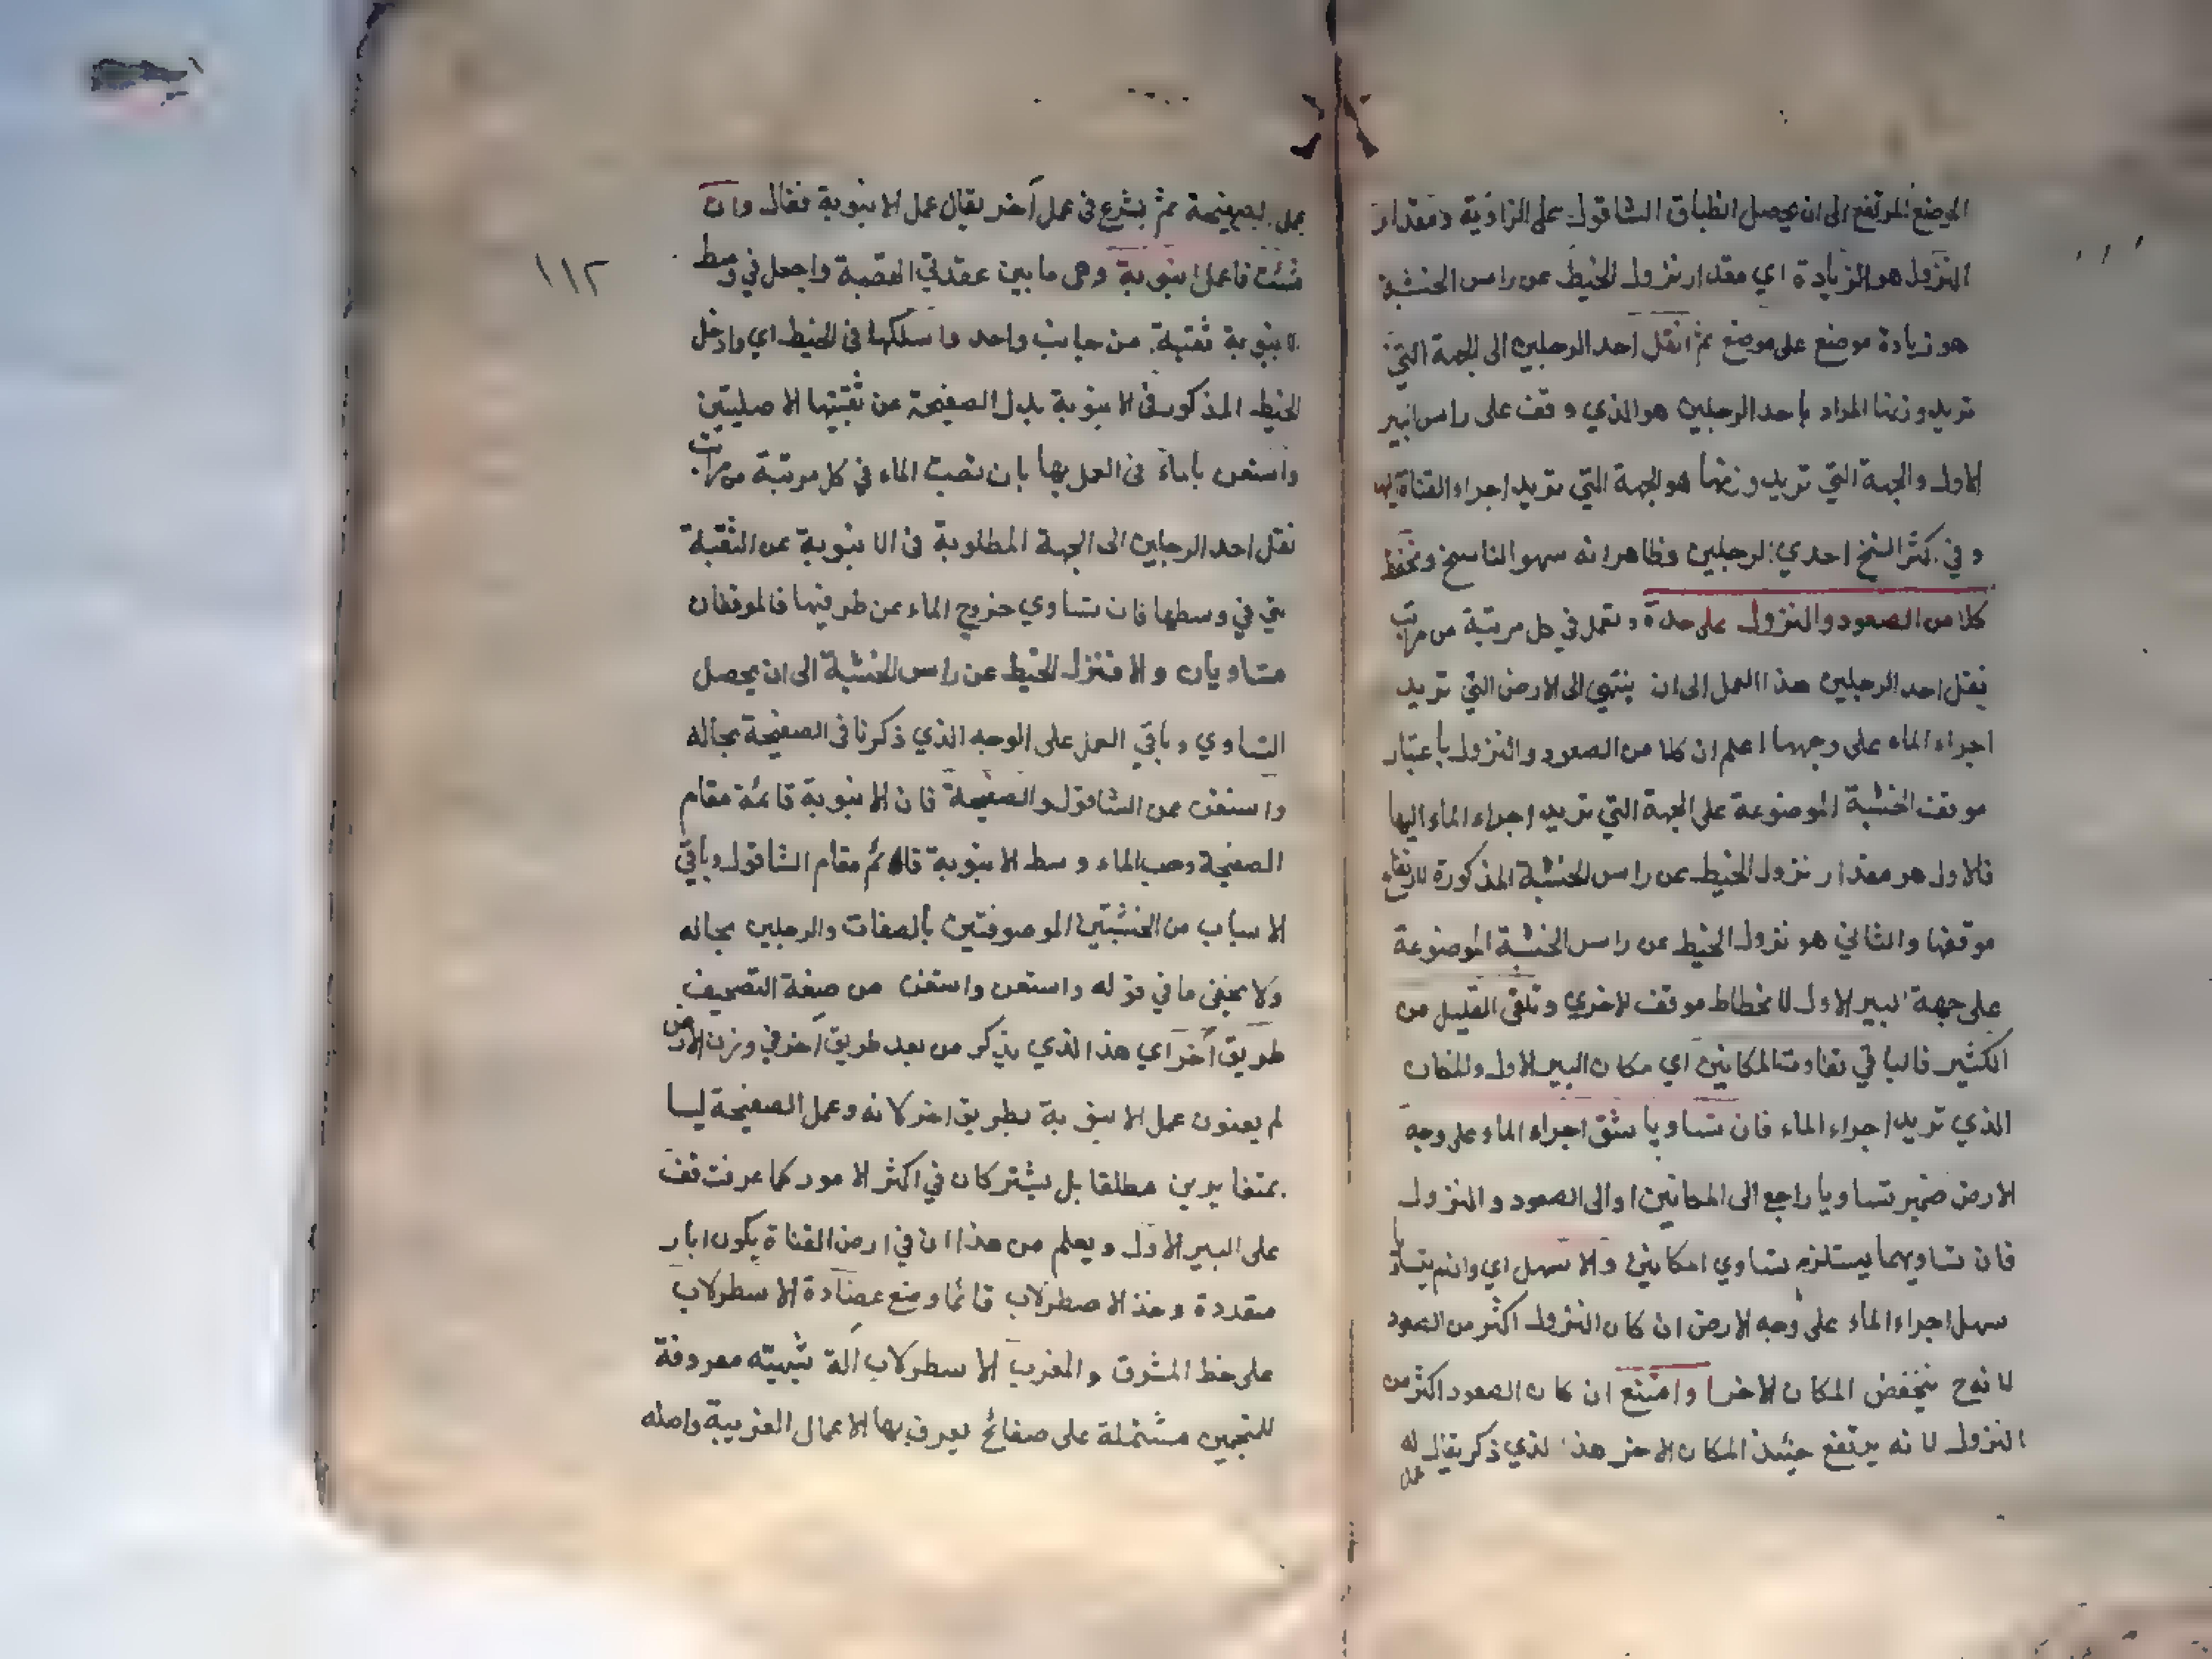 الموضع المرتفع الى ان يحصل انطباق الشاقول على الزاوية ومقدار
النزول هو الزيادة اي مقدار نزول الخيط عن راس الخشبة
هو زيادة موضع على موضع ثم انقل احد الرجلين الى الجهة التي
تريد وزنها المراد باحد الرجلين هو الذي وقف على راس البير
الاول والجهة التي تريد وزنها هو الجهة التي تريد اجراء القناة اليها
وفي اكثر النسخ احدي الرجلين وظاهر انه سهو الناسخ وتحفظ
كلا من الصعود والنزول على حدة وتعمل في كل مرتبة من مراتب
نقل احد الرجلين هذا العمل الى ان ينتهي الى الارض التي تريد
اجراء الماء على وجهها اعلم ان كلا من الصعود والنزول باعتبار
موقف الخشبة الموضوعة على الجهة التي تريد اجراء الماء اليها
فالاول هو مقدار نزول الخيط عن راس الخشبة المذكورة لارتفاع
موقفها والثاني هو نزول الخيط عن راس الخشبة الموضوعة
على جهة البير الاول لانحطاط موقف الاخرى وتلقى القليل من
الكثير فالباقي تفاوت المكانين اي مكان البير الاول والمكان
الذي تريد اجراء الماء فان تساويا شق اجراء الماء على وجه
الارض ضمير تساويا راجع الى المكانين او الى الصعود والنزول
فان تساويهما يستلزم تساوي امكانين والا سهل اي وان لم يتساويا
سهل اجراء الماء على وجه الارض ان كان النزول اكثر من الصعود
لانه ح ينخفض المكان الاخر وامتنع ان كان الصعود اكثر من
النزول لانه يرتفع حينئذ المكان الاخر هذا الذي ذكر يقال له
عمل
عمل الصفيحة ثم يشرع في عمل آخر يقال عمل الانبوبة فقال وان
شئت فاعمل انبوبة وهي ما بين عقدتي القصبة واجعل في وسط
الانبوبة ثقبة من جانب واحد واسلكها في الخيط اي وادخل
الخيط المذكور في الانبوبة بدل الصفيحة عن ثقبتيها الاصليتين
واستعن بالماء في العمل بها بان تصب الماء في كل مرتبة من مراتب
نقل احد الرجلين الى الجهة المطلوبة في الانبوبة عن الثقبة
التي في وسطها فان تساوي خروج الماء عن طرفيها فالموقفان
متساويان والا فتنزل الخيط عن راس الخشبة الى ان يحصل
التساوي وباقي العمل على الوجه الذي ذكرنا في الصفيحة بحاله
واستغن عن الشاقول والصفيحة فان الانبوبة قائمة مقام
الصفيحة وصب الماء وسط الانبوبة قائم مقام الشاقول وباقي
الاسباب من الخشبتين الموصوفتين بالصفات والرجلين بحاله
ولا يخفى ما في قوله واستعن واستغن من صنعة التصحيف
طريق آخر اي هذا الذي يذكر من بعد طريق آخر في وزن الارض
لم يعنون عمل الانبوبة بطريق اخر لانه وعمل الصفيحة ليسا
بمتغايرين مطلقا بل يشتركان في اكثر الامور كما عرفت قف
على البير الاول ويعلم من هذا ان في ارض القناة يكون ابار
متعددة وخذ الاصطرلاب قائما وضع عضادة الاسطرلاب
على خط المشرق والمغرب الاسطرلاب آلة شبيته معروفة
للنجمين مشتملة على صفائح يعرف بها الاعمال الغريبة واصله
١١٢